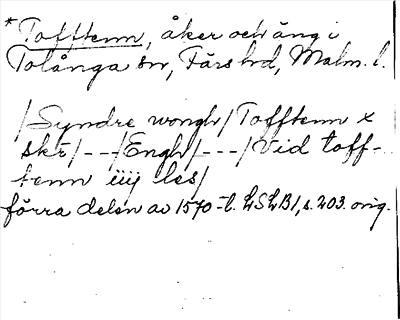 *Tofftenn, åker och äng i
Tolånga sn, Färs hd, Malm. l.
/Syndre wongh/Tofftenn x
skr/---/Engh/---/Vid toff-
tenn iiij les/
förra delen av 1570-t. LSLB1, s. 203. orig.